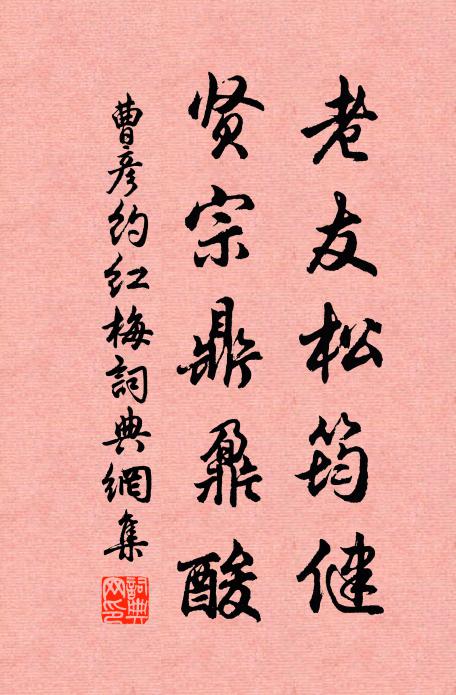 老友松筠健
贤宗鼎鼐酸
曹彦约红梅詞典網集
詞典網印